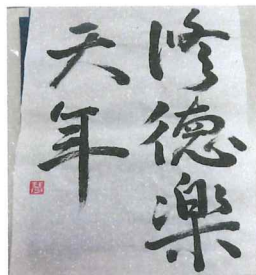 修德楽
天年